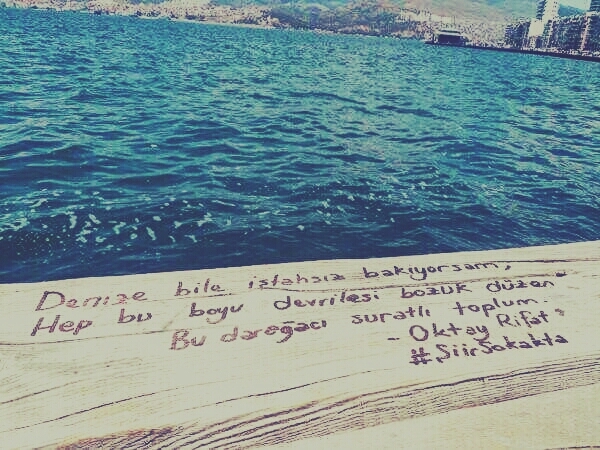 Denize bile iştahsız bakıyorsam,
Hep bu boyu devrilesi bozuk düzen
Bu darağacı suratlı toplum.
- Oktay Rifat
#ŞiirSokakta